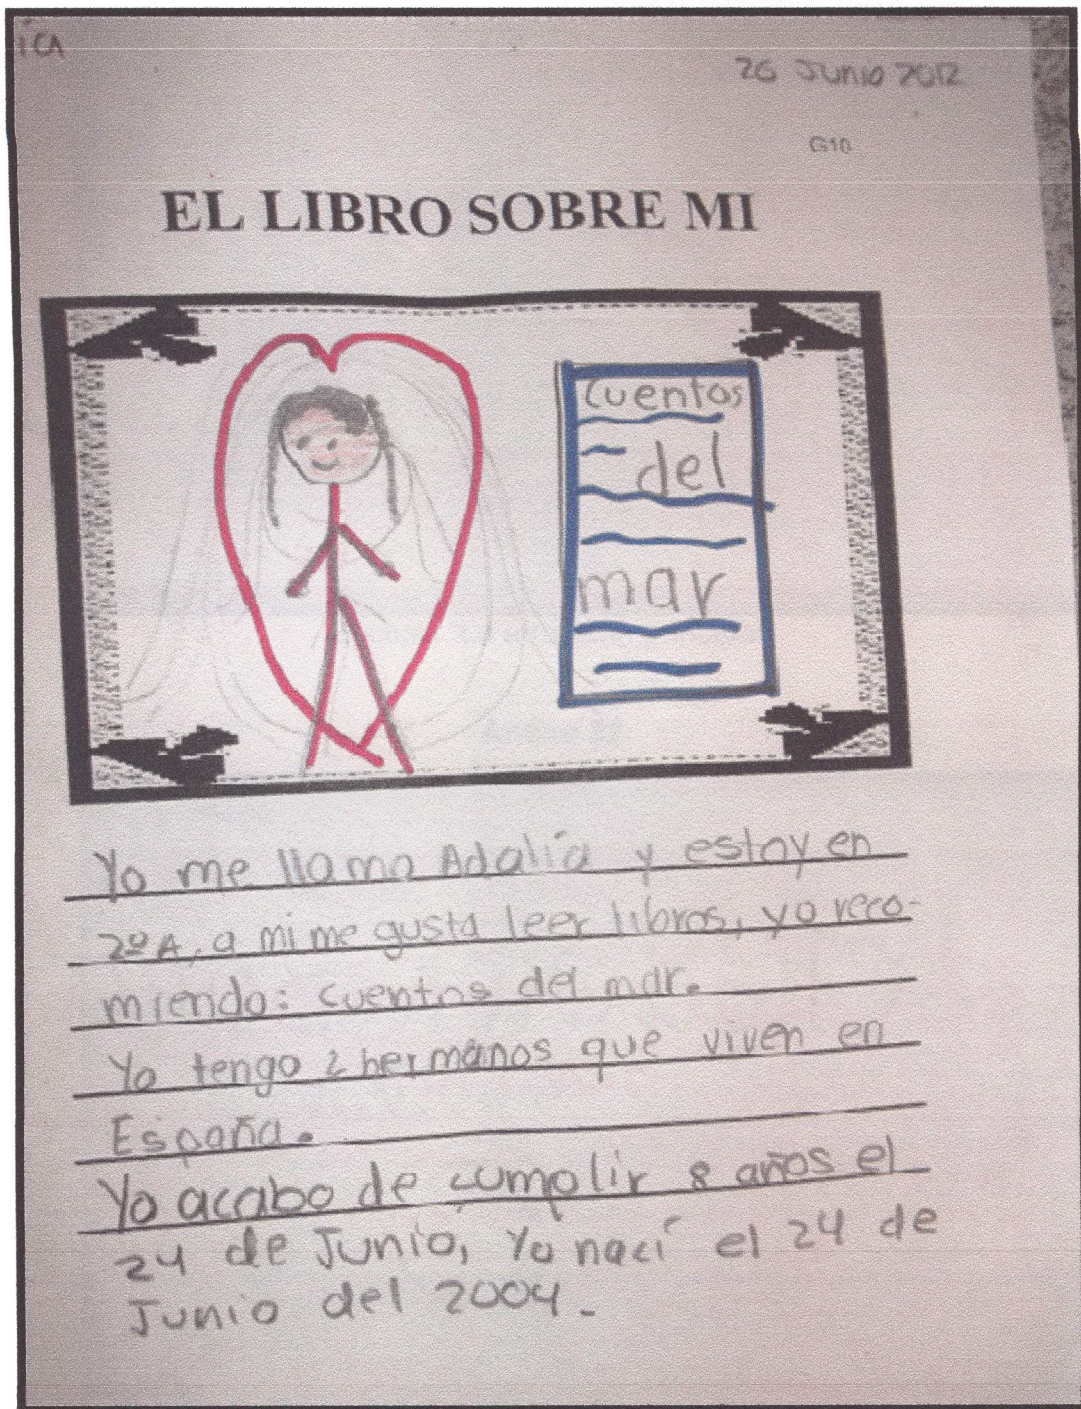 ICA
26 Junio 2012
G10
EL LIBRO SOBRE MI
Cuentos
del
mar
Yo me llamo Adalía y estoy en
2º A, a mi me gusta leer libros, yo reco-
miendo: cuentos del mar.
Yo tengo 2 hermanos que viven en
España.
Yo acabo de cumplir 8 años el
24 de Junio, Yo nací el 24 de
Junio del 2004.